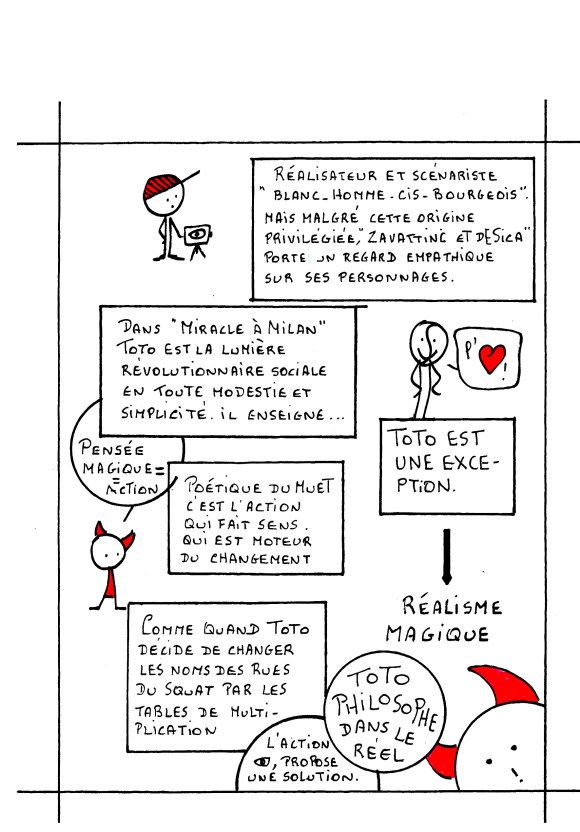 RÉALISATEUR ET SCÉNARISTE
"BLANC-HOMME-CIS-BOURGEOIS".
MAIS MALGRÉ CETTE ORIGINE
PRIVILÉGIÉE, "ZAVATTINC ET DESICA"
PORTE UN REGARD EMPATHIQUE
SUR SES PERSONNAGES.
DANS "MIRACLE À MILAN"
TOTO EST LA LUMIÈRE
RÉVOLUTIONNAIRE SOCIALE
EN TOUTE MODESTIE ET
SIMPLICITÉ. IL ENSEIGNE...
P'
!
TOTO EST
UNE EXCE-
PTION.
PENSÉE
MAGIQUE=
=
ACTION
POÉTIQUE DU MUET
C'EST L'ACTION
QUI FAIT SENS.
QUI EST MOTEUR
DU CHANGEMENT
RÉALISME
MAGIQUE
COMME QUAND TOTO
DÉCIDE DE CHANGER
LES NOMS DES RUES
DU SQUAT PAR LES
TABLES DE MULTI-
PLICATION
TOTO
PHILOSOPHE
DANS LE
RÉEL
L'ACTION
, PROPOSE
UNE SOLUTION.